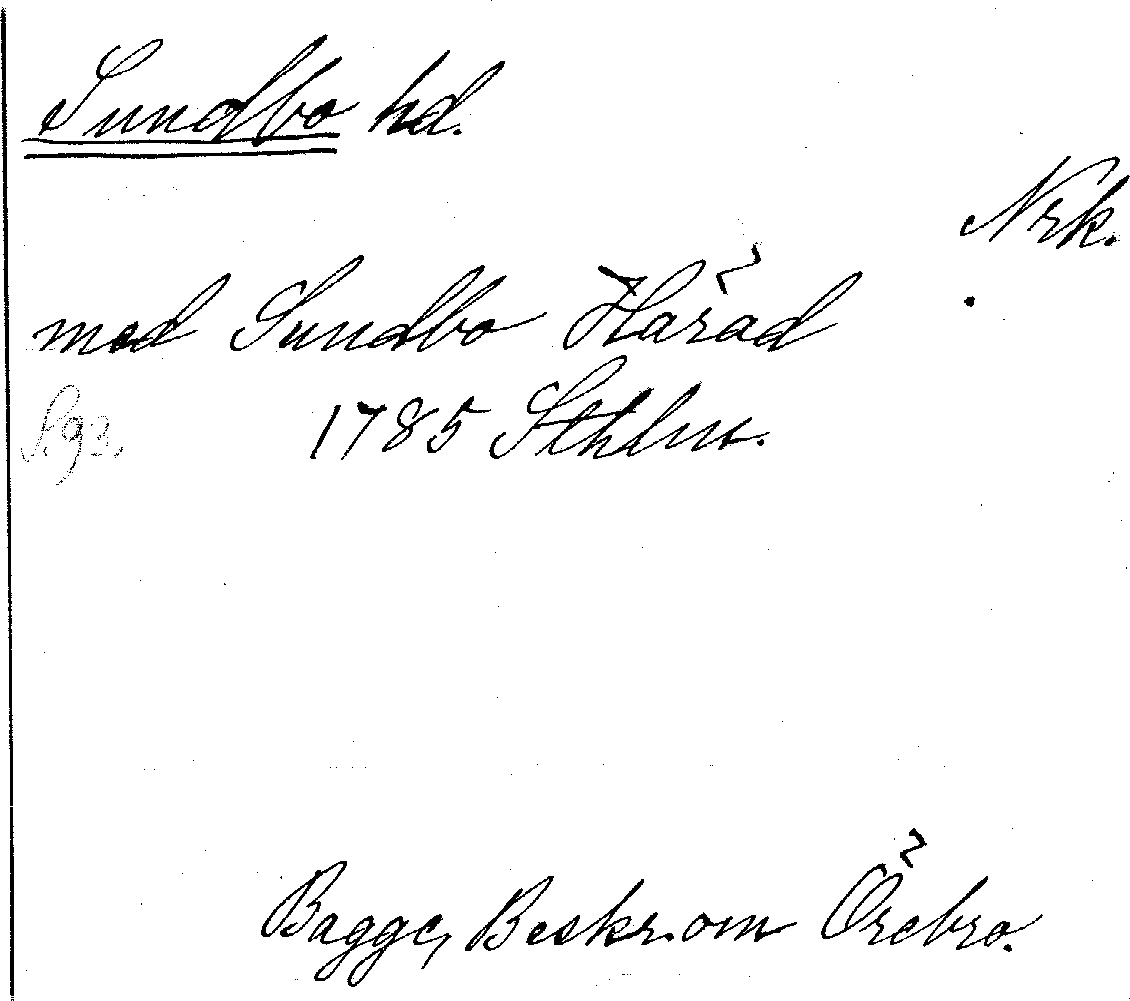 Sundbo hd.
Nrk.
med Sundbo Härad
S. 93. 1785 Sthlm.
Bagge, Beskr. om Örebro.